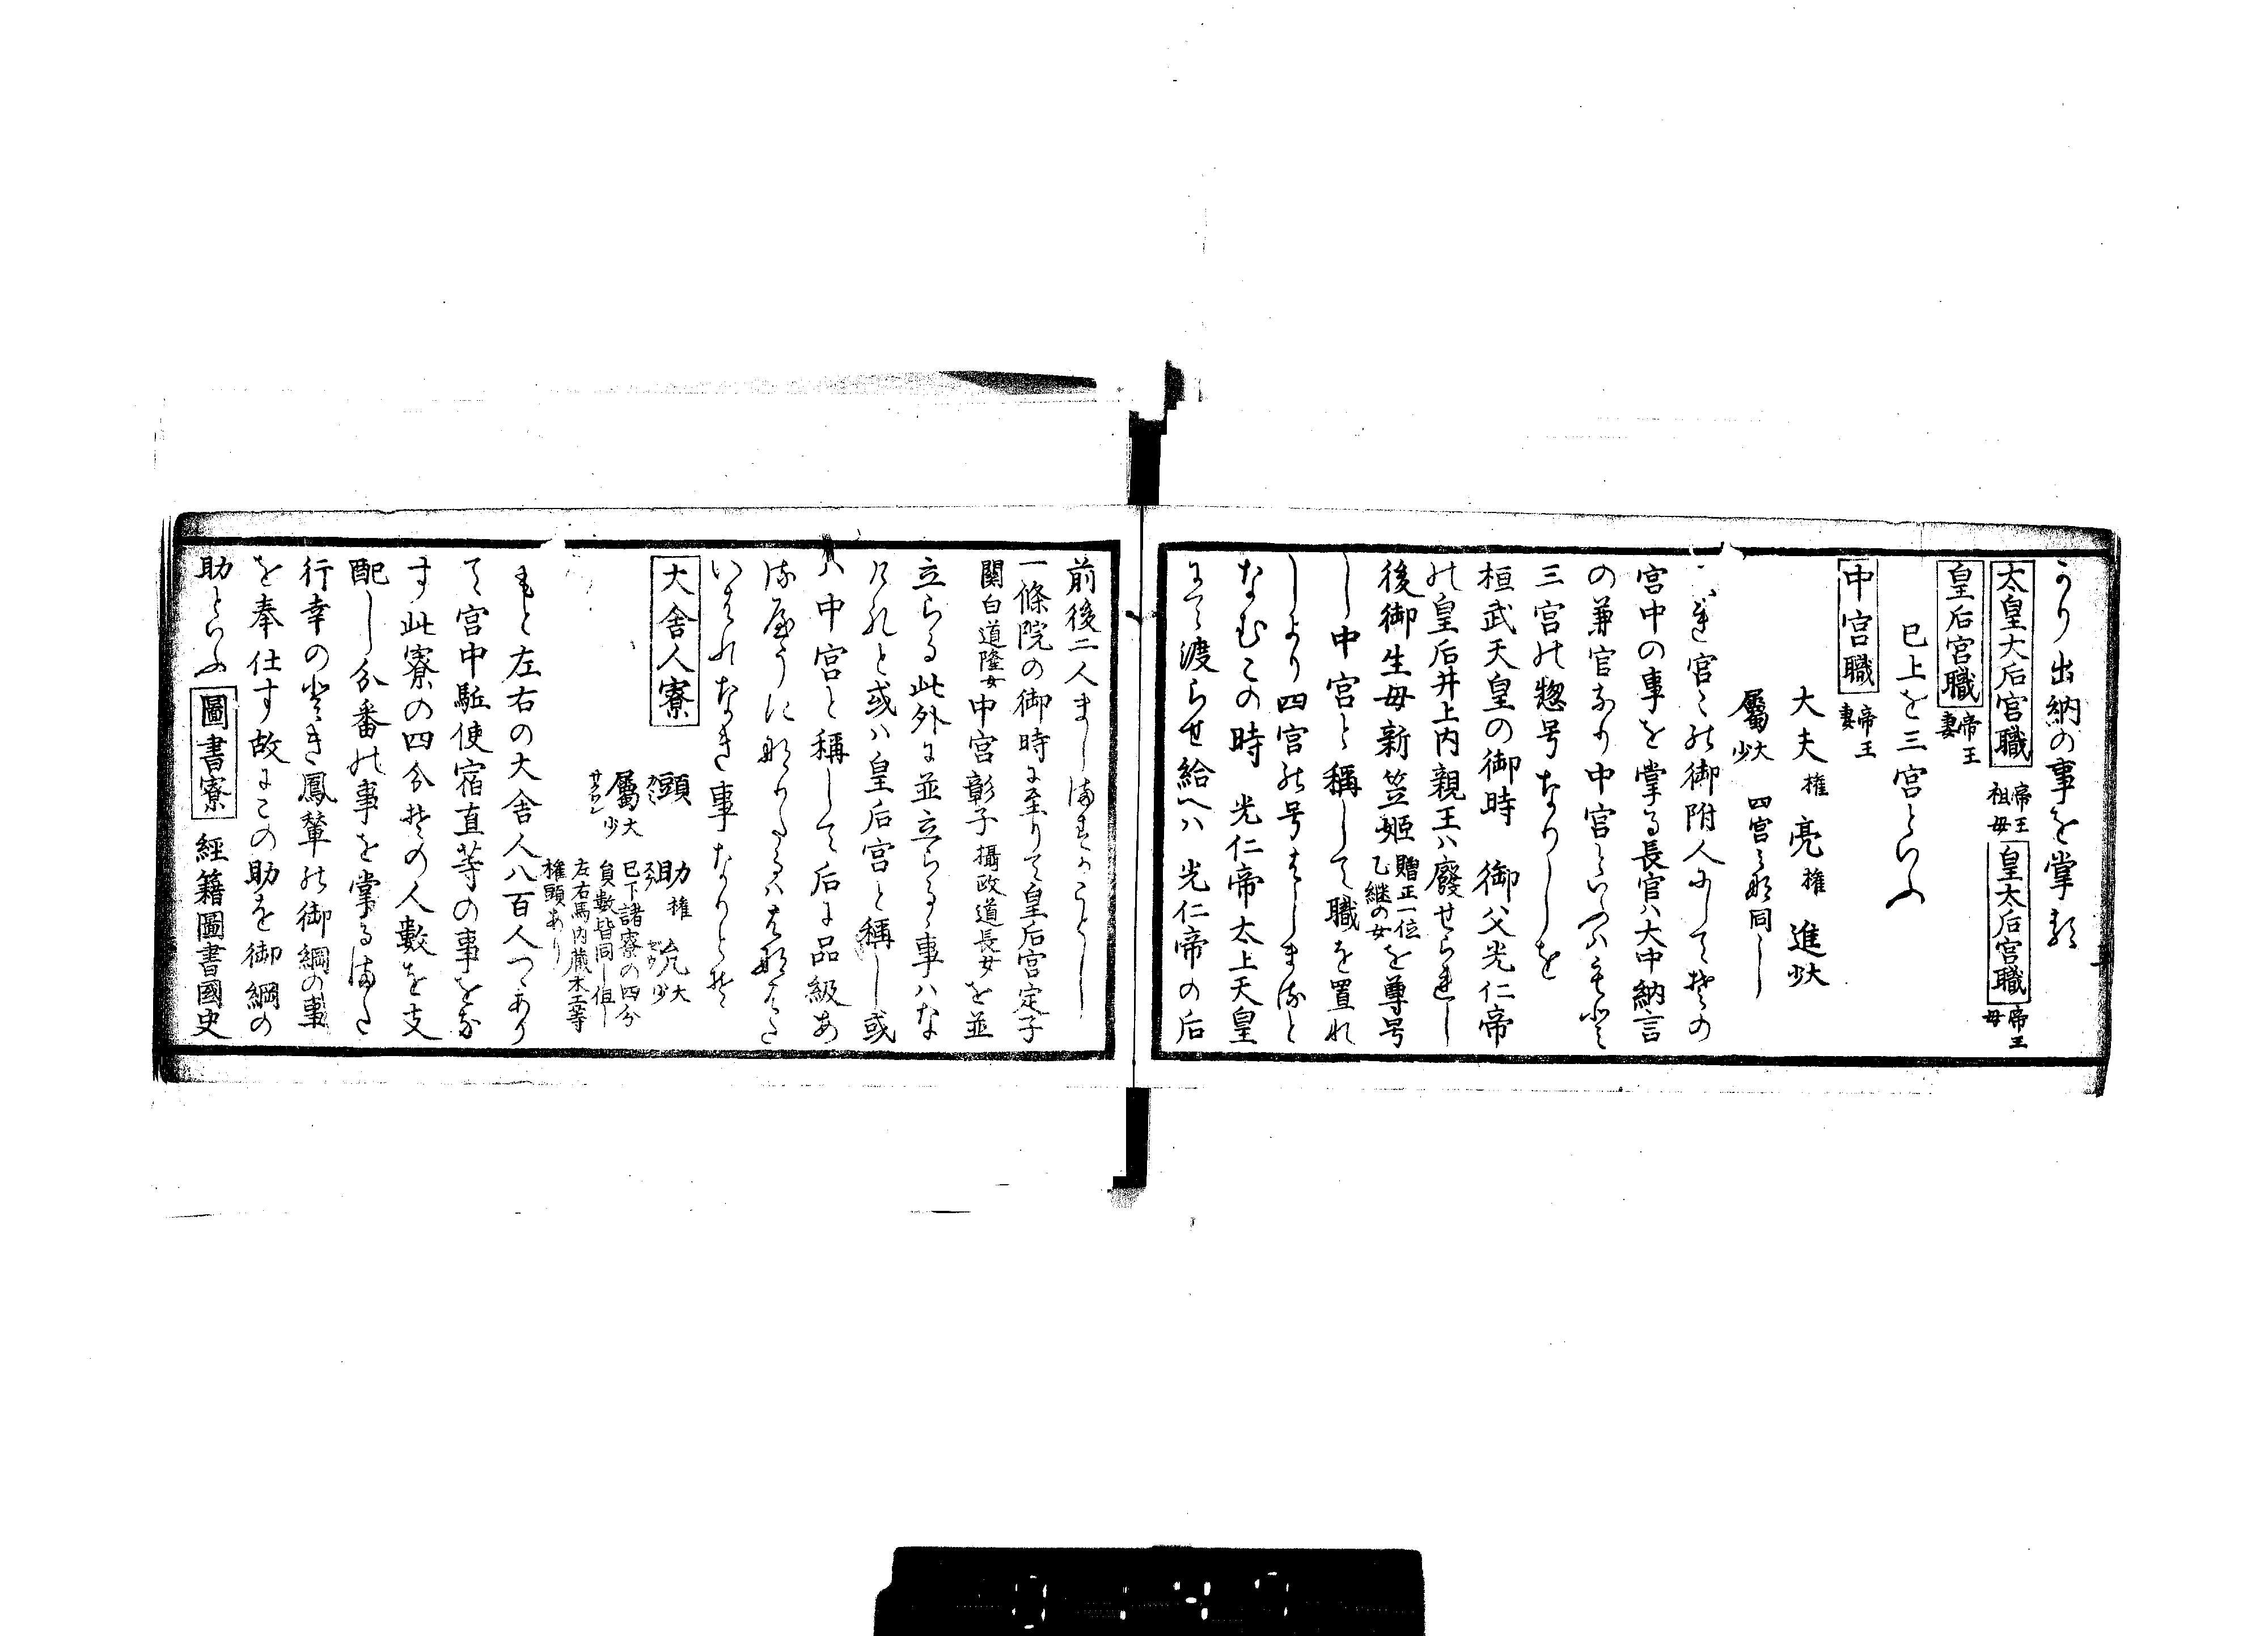 うり出納の事を掌る
太皇大后宮職 帝王祖母 皇太后宮職 帝王母
皇后宮職 帝王妻
已上を三宮といふ
中宮職 帝王妻
大夫 権 亮 権 進 大少
屬 大少 四宮之者同し
宮々の御附人にして其の
宮中の事を掌る長官ハ大中納言
の兼官なり中宮といへハもと
三宮の惣号なりしを
桓武天皇の御時 御父光仁帝
の皇后井上内親王ハ廢せられし
後御生母新笠姫 贈正一位乙継の女 を尊号
し中宮と稱して職を置れ
しより四宮の号はしまると
なむこの時 光仁帝太上天皇
にて渡らせ給へハ 光仁帝の后
前後二人ましますかことし
一條院の御時に至りて皇后宮定子
関白道隆女 中宮彰子 攝政道長女 を並
立らる此外に並立らる事ハな
けれと或ハ皇后宮と稱し或
ハ中宮と稱して后に品級あ
るやうになりたるハはなはた
いはれなき事なりとそ
大舎人寮
頭 助 権 允 大少
屬 大少 已下諸寮の四分員數皆同し但し左右馬内蔵木工等権頭あり
もと左右の大舎人八百人つゝあり
て宮中駈使宿直等の事をな
す此寮の四分其の人數を支
配し分番の事を掌るまた
行幸のとき鳳輦の御綱の事
を奉仕す故にこの助を御綱の
助といふ 圖書寮 經籍圖書國史